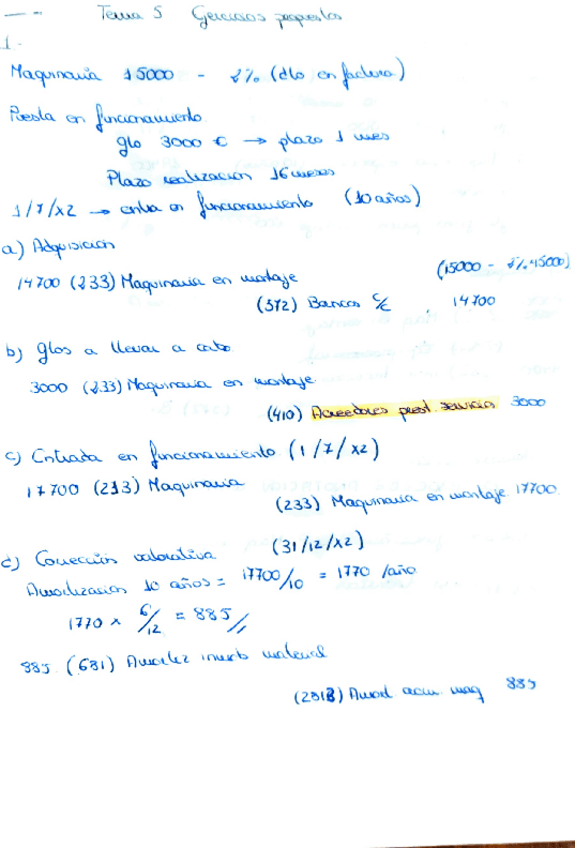 Tema 5 Ejercicios propuestos
1.-
Maquinaria 15000 - 2% (dto en factura)
Puesta en funcionamiento
gto 3000 € → plazo 1 mes
Plazo realización 16 meses
1/7/x2 → entra en funcionamiento (10 años)
a) Adquisición
(15000 - 2% 15000)
14700 (233) Maquinaria en montaje
(572) Bancos c/c 14700
b) Gtos a llevar a cabo
3000 (233) Maquinaria en montaje
(410) Acreedores prest. servicio 3000
c) Entrada en funcionamiento (1/7/x2)
17700 (213) Maquinaria
(233) Maquinaria en montaje 17700
d) Corrección valorativa (31/12/x2)
Amortización 10 años = 17700/10 = 1770 /año
1770 x 6/12 = 885 //
885 (681) Amortiz inmob material
(2813) Amort acum maq 885